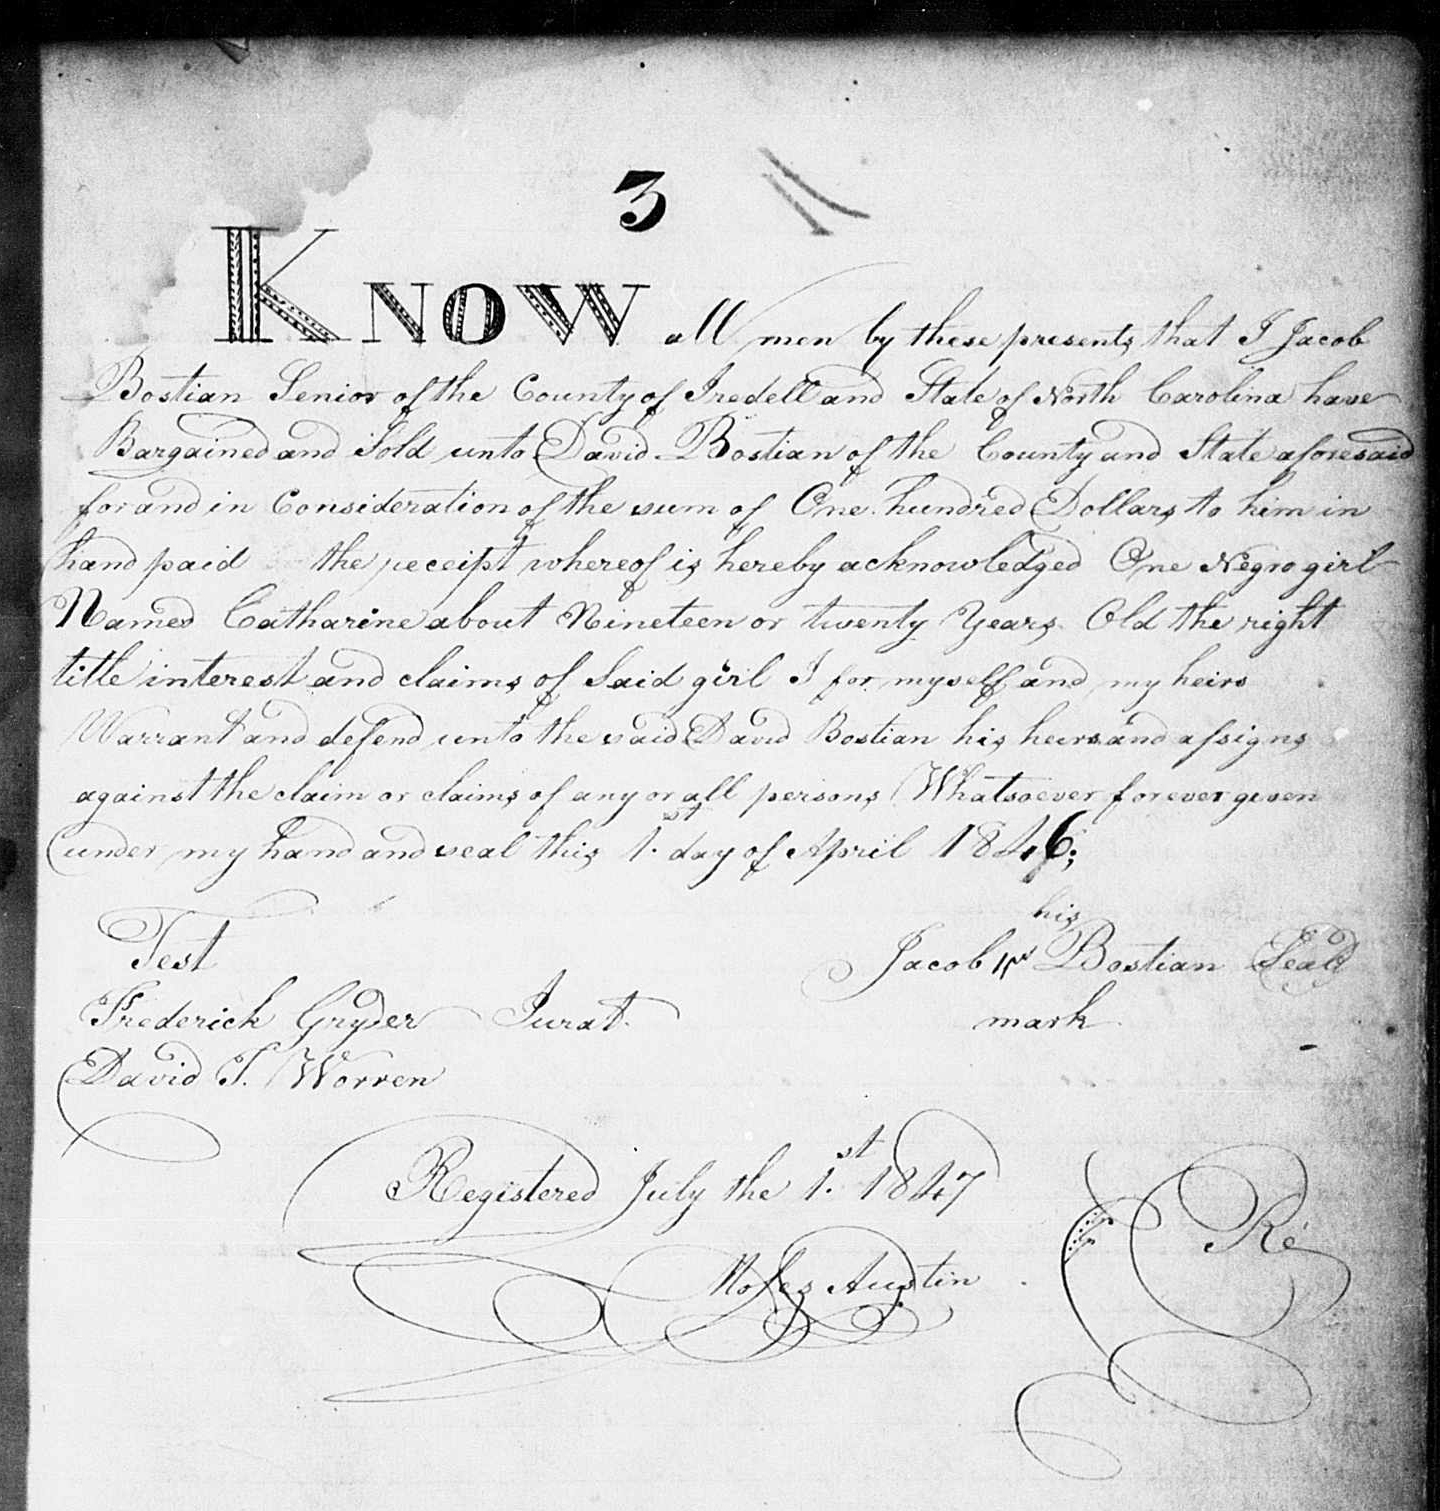 3
Know all men by these presents that I Jacob
Bostian Senior of the County of Iredell and State of North Carolina have
Bargained and Sold unto David Bostian of the County and State aforesaid
for and in Consideration of the sum of One hundred Dollars to him in
hand paid the receipt whereof is hereby acknowledged One Negro girl
Named Catharine about Nineteen or twenty Years Old the right
title interest and claims of Said girl I for myself and my heirs
Warrant and defend unto the said David Bostian his heirs and assigns
against the claim or claims of any or all persons Whatsoever forever given
under my hand and seal this 1st day of April 1846;
his
Test
Jacob Bostian Seal
Frederick Gryder Jurat.
mark
David T. Worren
Registered July the 1st 1847
Moses Austin Re